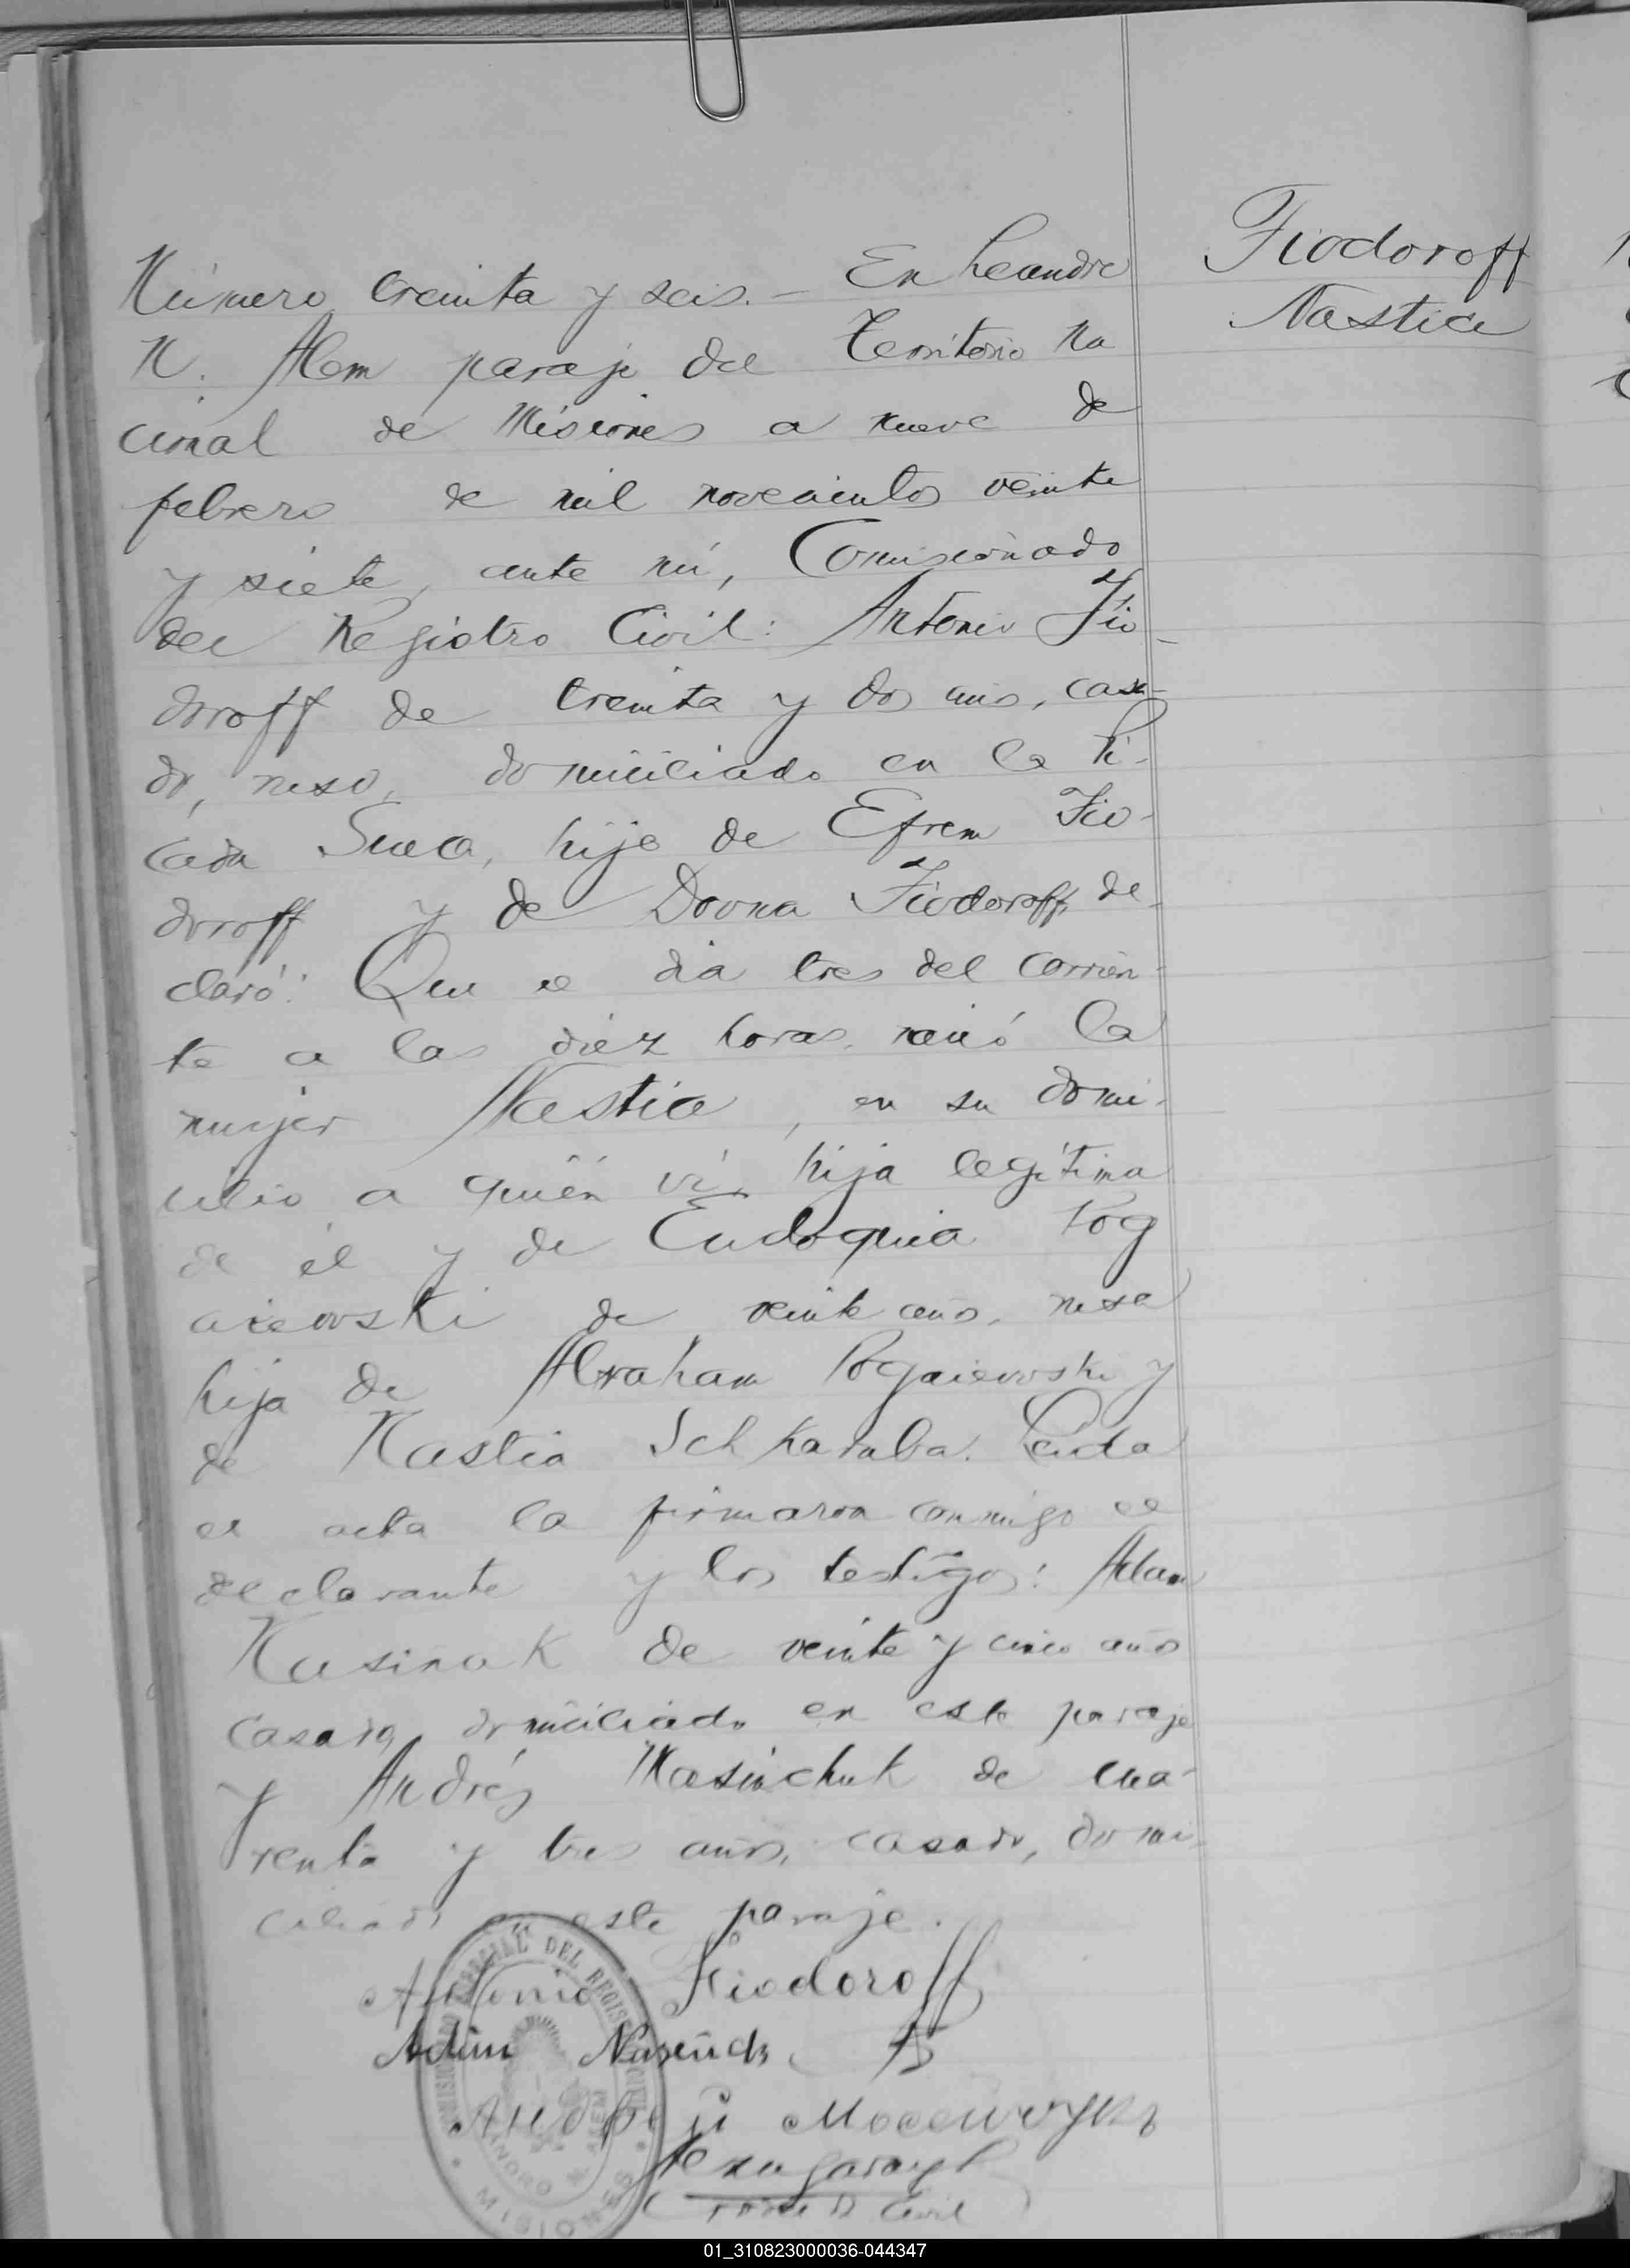 Fiodoroff
Nastia
Número treinta y seis. - En Leandro
N. Alem paraje del Territorio Na
cional de Misiones a nueve de
febrero de mil novecientos veinte
y siete, ante mi, Comisionado
del Registro Civil: Antonio Fio-
doroff de treinta y dos años, casa-
do, ruso, domiciliado en la Pi-
cada Sueca, hijo de Efrem Fio-
doroff y de Dovna Fiodoroff, de-
claró: Que el dia tres del corrien-
te a las diez horas, nació la
mujer Nastia, en su domi-
cilio a quién ví, hija legítima
de él y de Eudoquia Pog
aiewski de veinte años, rusa
hija de Abraham Pogaiewski y
de Nastia Schkaraba. Leida
el acta la firmaron conmigo el
declarante y los testigos: Adam
Nasinak de veinte y cinco años
casado, domiciliado en este paraje
y Andrés Masinchuk de cua-
renta y tres años, casado, domi-
ciliado en este paraje.
Antonio Fiodoroff
Adam
COMISIONADO DEL REGISTRO CIVIL
LEANDRO N. ALEM
MISIONES
Civil
01_310823000036-044347